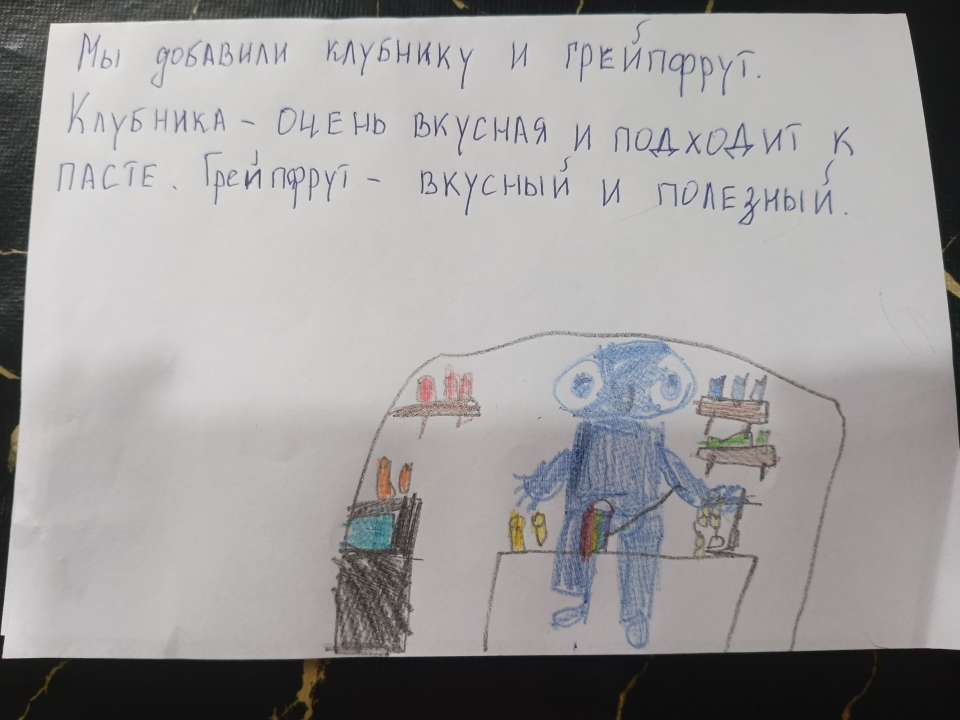 Мы добавили клубнику и грейпфрут.
Клубника - очень вкусная и подходит к
пасте. Грейпфрут - вкусный и полезный.